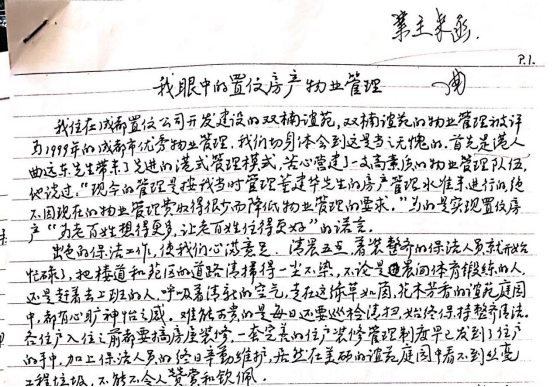 业主来函
P.1.
我眼中的置信房产物业管理
我住在成都置信公司开发建设的双楠谊苑，双楠谊苑的物业管理被评
为1999年的成都市优秀物业管理，我们切身体会到这是当之无愧的。首先是港人
曲远东先生带来了先进的港式管理模式，苦心营建了一支高素质的物业管理队伍。
他说过，“现今的管理是按我当时管理董建华先生的房产管理水准来进行的，绝
不因现在的物业管理费收得很少而降低物业管理的要求。”为的是实现置信房
产“为老百姓想得更多，让老百姓住得更好”的诺言。
出色的保洁工作，使我们心满意足。清晨五点，着装整齐的保洁人员就开始
忙碌了，把楼道和苑区的道路清扫得一尘不染，不论是晨间体育锻练的人，
还是赶着去上班的人，呼吸着清新的空气，走在这绿草如茵，花木芳香的谊苑庭园
中，都有心旷神怡之感。难能可贵的是每日还要巡检清扫，始终保持整齐清洁。
各住户入住之前都要搞房屋装修，一套完善的住户装修管理制度早已发到了住户
的手中，加上保洁人员的终日辛勤维护，居然在美丽的谊苑庭园中看不到丝毫
工程垃圾，不能不令人赞赏和钦佩。